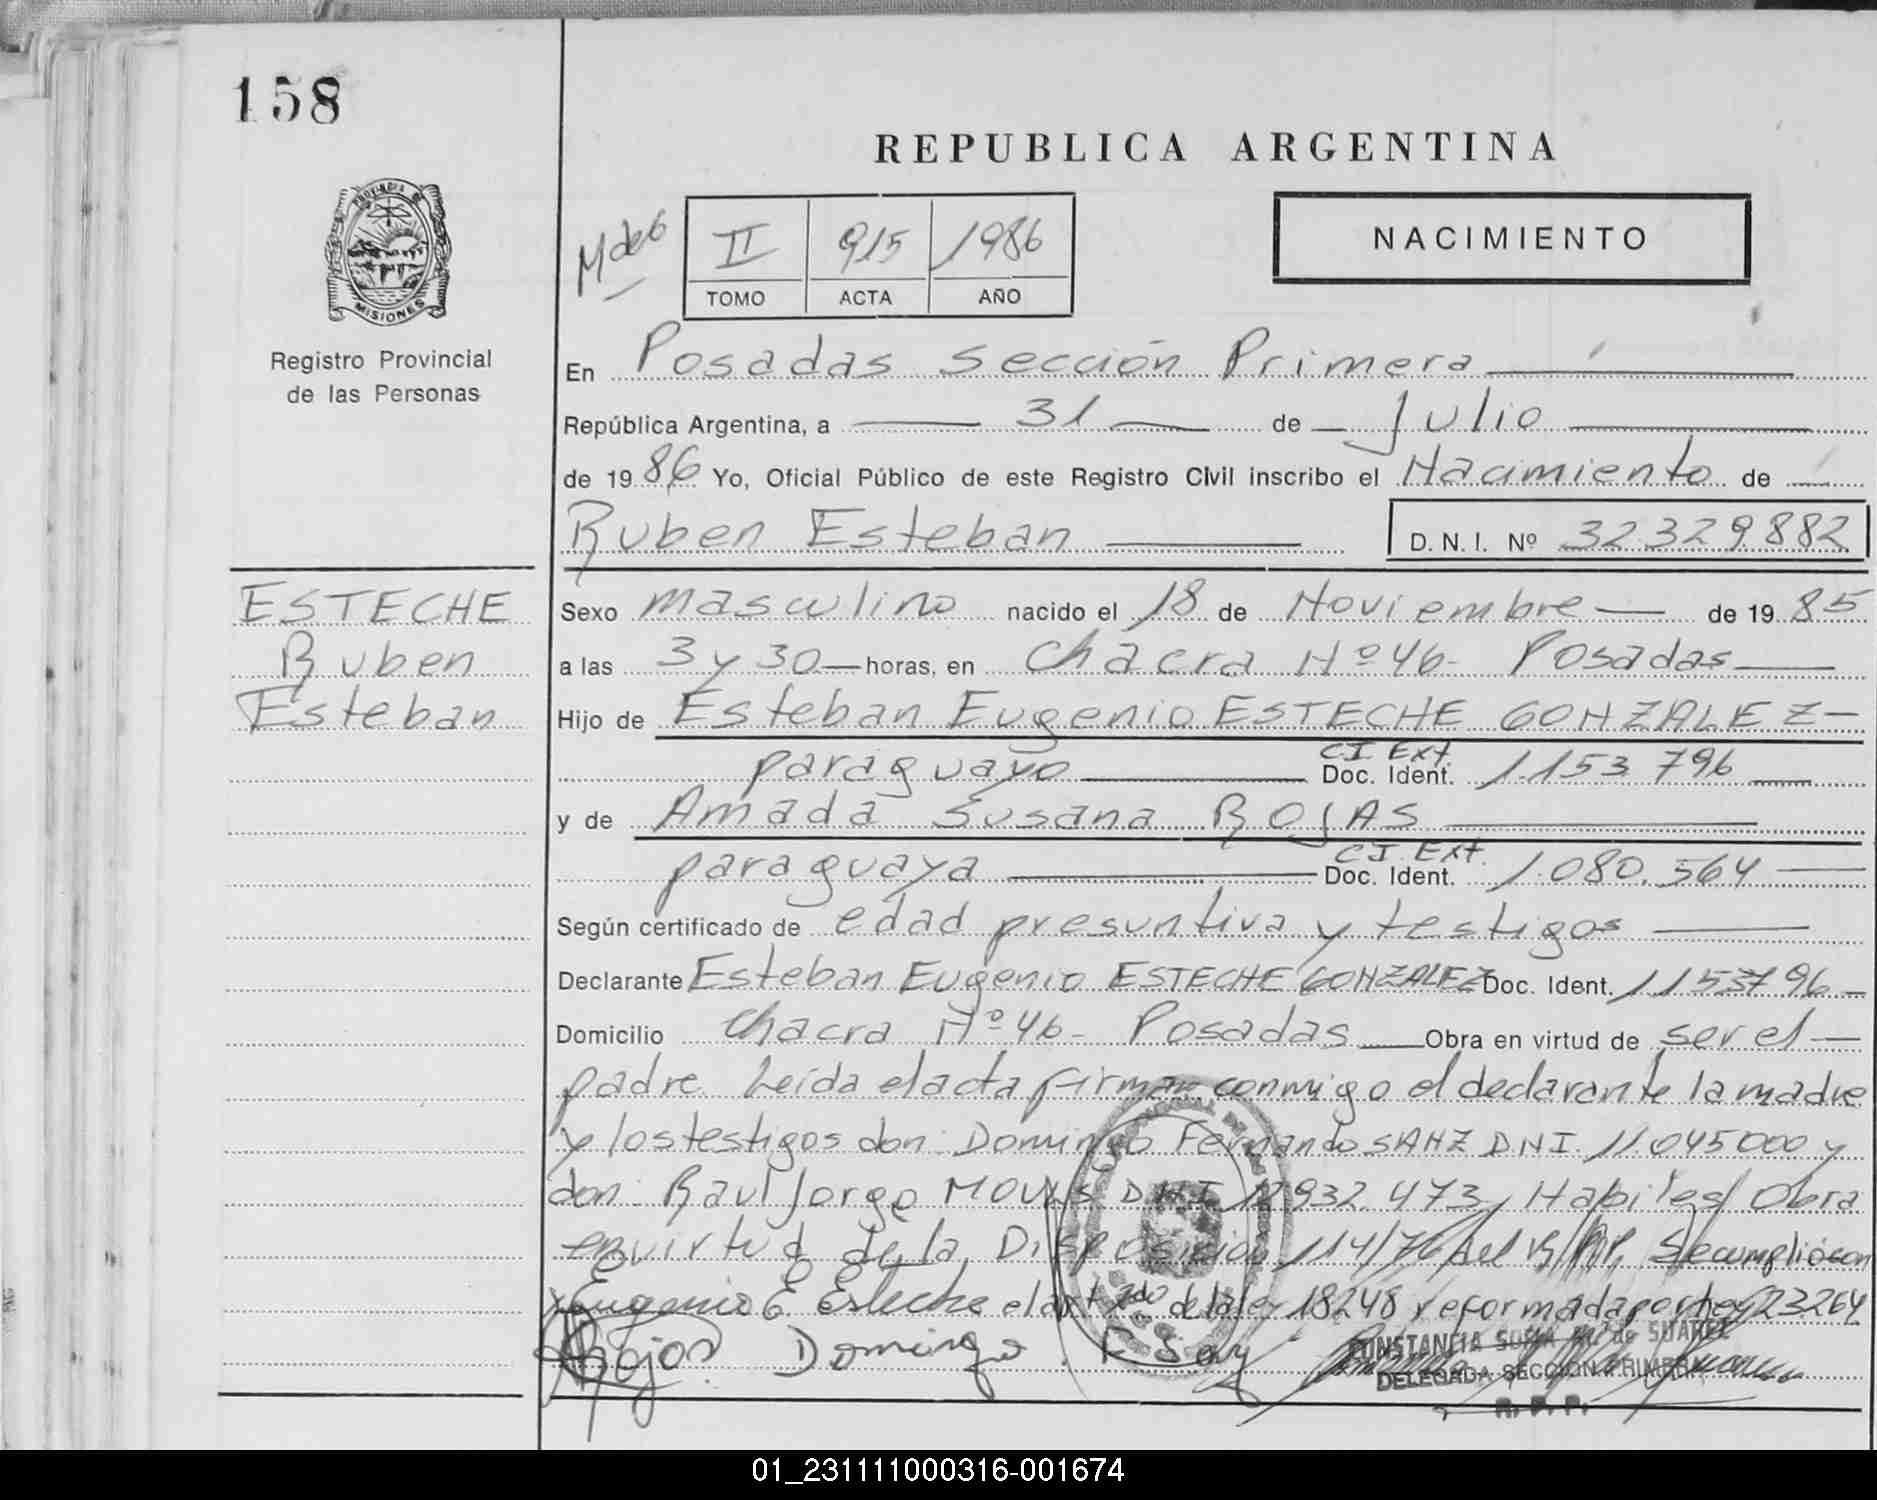 158
REPUBLICA ARGENTINA
PROVINCIA DE
MISIONES
Registro Provincial
de las Personas
II 915 1986
TOMO ACTA AÑO
NACIMIENTO
En Posadas Sección Primera
República Argentina, a 31 de Julio
de 1986 Yo, Oficial Público de este Registro Civil inscribo el Nacimiento de
Ruben Esteban D.N.I. Nº 32329882
ESTECHE
Ruben
Esteban
Sexo masculino nacido el 18 de Noviembre de 1985
a las 3 y 30 horas, en Chacra Nº 46- Posadas
Hijo de Esteban Eugenio ESTECHE GONZALEZ-
paraguayo CI Ext. Doc. Ident. 1.153.796
y de Amada Susana ROJAS
paraguaya CI Ext. Doc. Ident. 1.080.564
Según certificado de edad presuntiva y testigos
Declarante Esteban Eugenio ESTECHE GONZALEZ Doc. Ident. 1153796
Domicilio Chacra Nº 46- Posadas Obra en virtud de ser el
padre. Leída el acta firman conmigo el declarante la madre
y los testigos don: Domingo Fernando SANZ D.N.I. 11.045000 y
don: Raul Jorge D.N.I. 12932.473, Habiles/ Obra
en virtud de la Disposición 114/76 del Se cumplió con
Eugenio E Esteche el art 2do de la ley 18248 reformada por ley 23264
Rojas Domingo F
CONSTANCIA de SUAREZ
DELEGADA SECCION PRIMERA
R. P. P.
01_231111000316-001674